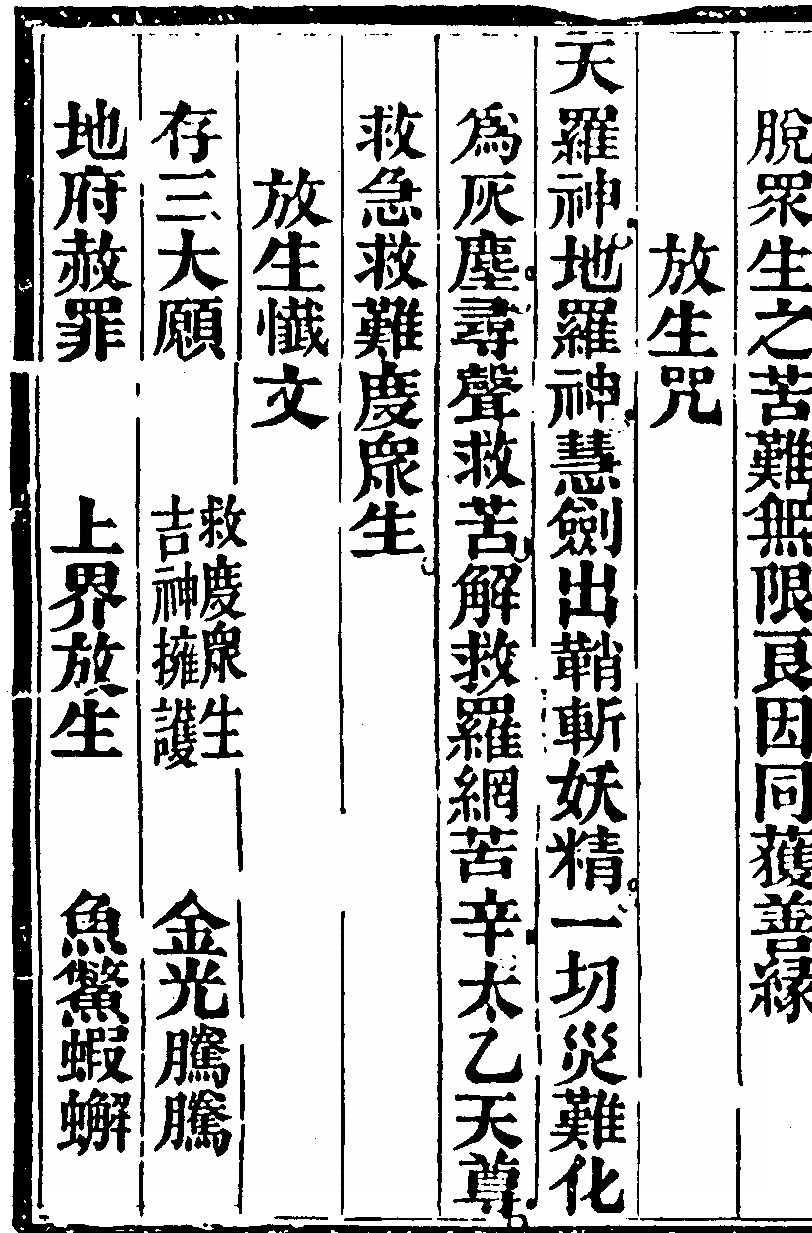 脫眾生之苦難無限良因同獲善緣
放生咒
天羅神地羅神慧劍出鞘斬妖精一切災難化
為灰塵尋聲救苦解救羅網苦辛太乙天尊
救急救難慶眾生
放生懺文
存三大願 救慶眾生吉神擁護 金光騰騰
地府赦罪 上界放生 魚鱉蝦蠏